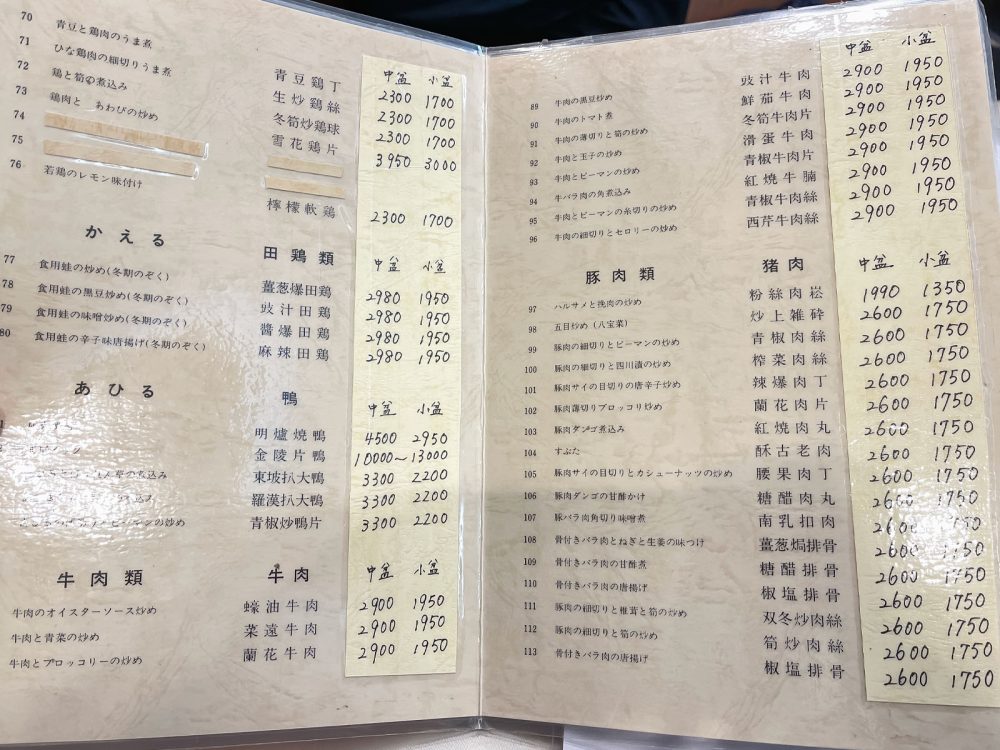 70 青豆と鶏肉のうま煮 青豆鶏丁
71 ひな鶏肉の細切りうま煮 生炒鶏絲
72 鶏と筍の煮込み 冬筍炒鶏球
73 鶏肉と あわびの炒め 雪花鶏片
74
75
76 若鶏のレモン味付け 檸檬軟鶏
中盆 小盆
2300 1700
2300 1700
2300 1700
3950 3000
2300 1700
かえる 田鶏類
中盆 小盆
77 食用蛙の炒め(冬期のぞく) 薑葱爆田鶏 2980 1950
78 食用蛙の黒豆炒め(冬期のぞく) 豉汁田鶏 2980 1950
79 食用蛙の味噌炒め(冬期のぞく) 醬爆田鶏 2980 1950
80 食用蛙の辛子味唐揚げ(冬期のぞく) 麻辣田鶏 2980 1950
あひる 鴨
中盆 小盆
明爐焼鴨 4500 2950
金陵片鴨 10000~13000
の煮込み 東坡扒大鴨 3300 2200
羅漢扒大鴨 3300 2200
ピーマンの炒め 青椒炒鴨片 3300 2200
牛肉類 牛肉
中盆 小盆
牛肉のオイスターソース炒め 蠔油牛肉 2900 1950
牛肉と青菜の炒め 菜遠牛肉 2900 1950
牛肉とブロッコリーの炒め 蘭花牛肉 2900 1950
中盆 小盆
89 牛肉の黒豆炒め 豉汁牛肉 2900 1950
90 牛肉のトマト煮 鮮茄牛肉 2900 1950
91 牛肉の薄切りと筍の炒め 冬筍牛肉片 2900 1950
92 牛肉と玉子の炒め 滑蛋牛肉 2900 1950
93 牛肉とピーマンの炒め 青椒牛肉片 2900 1950
94 牛バラ肉の角煮込み 紅焼牛腩 2900 1950
95 牛肉とピーマンの糸切りの炒め 青椒牛肉絲 2900 1950
96 牛肉の細切りとセロリーの炒め 西芹牛肉絲 2900 1950
豚肉類 猪肉
中盆 小盆
97 ハルサメと挽肉の炒め 粉絲肉崧 1990 1350
98 五目炒め(八宝菜) 炒上雑砕 2600 1750
99 豚肉の細切りとピーマンの炒め 青椒肉絲 2600 1750
100 豚肉の細切りと四川漬の炒め 榨菜肉絲 2600 1750
101 豚肉サイの目切りの唐辛子炒め 辣爆肉丁 2600 1750
102 豚肉薄切りブロッコリ炒め 蘭花肉片 2600 1750
103 豚肉ダンゴ煮込み 紅焼肉丸 2600 1750
104 すぶた 酥古老肉 2600 1750
105 豚肉サイの目切りとカシューナッツの炒め 腰果肉丁 2600 1750
106 豚肉ダンゴの甘酢かけ 糖醋肉丸 2600 1750
107 豚バラ肉角切り味噌煮 南乳扣肉 2600 1750
108 骨付きバラ肉とねぎと生姜の味つけ 薑葱焗排骨 2600 1750
109 骨付きバラ肉の甘酢煮 糖醋排骨 2600 1750
110 骨付きバラ肉の唐揚げ 椒塩排骨 2600 1750
111 豚肉の細切りと椎茸と筍の炒め 双冬炒肉絲 2600 1750
112 豚肉の細切りと筍の炒め 筍炒肉絲 2600 1750
113 骨付きバラ肉の唐揚げ 椒塩排骨 2600 1750